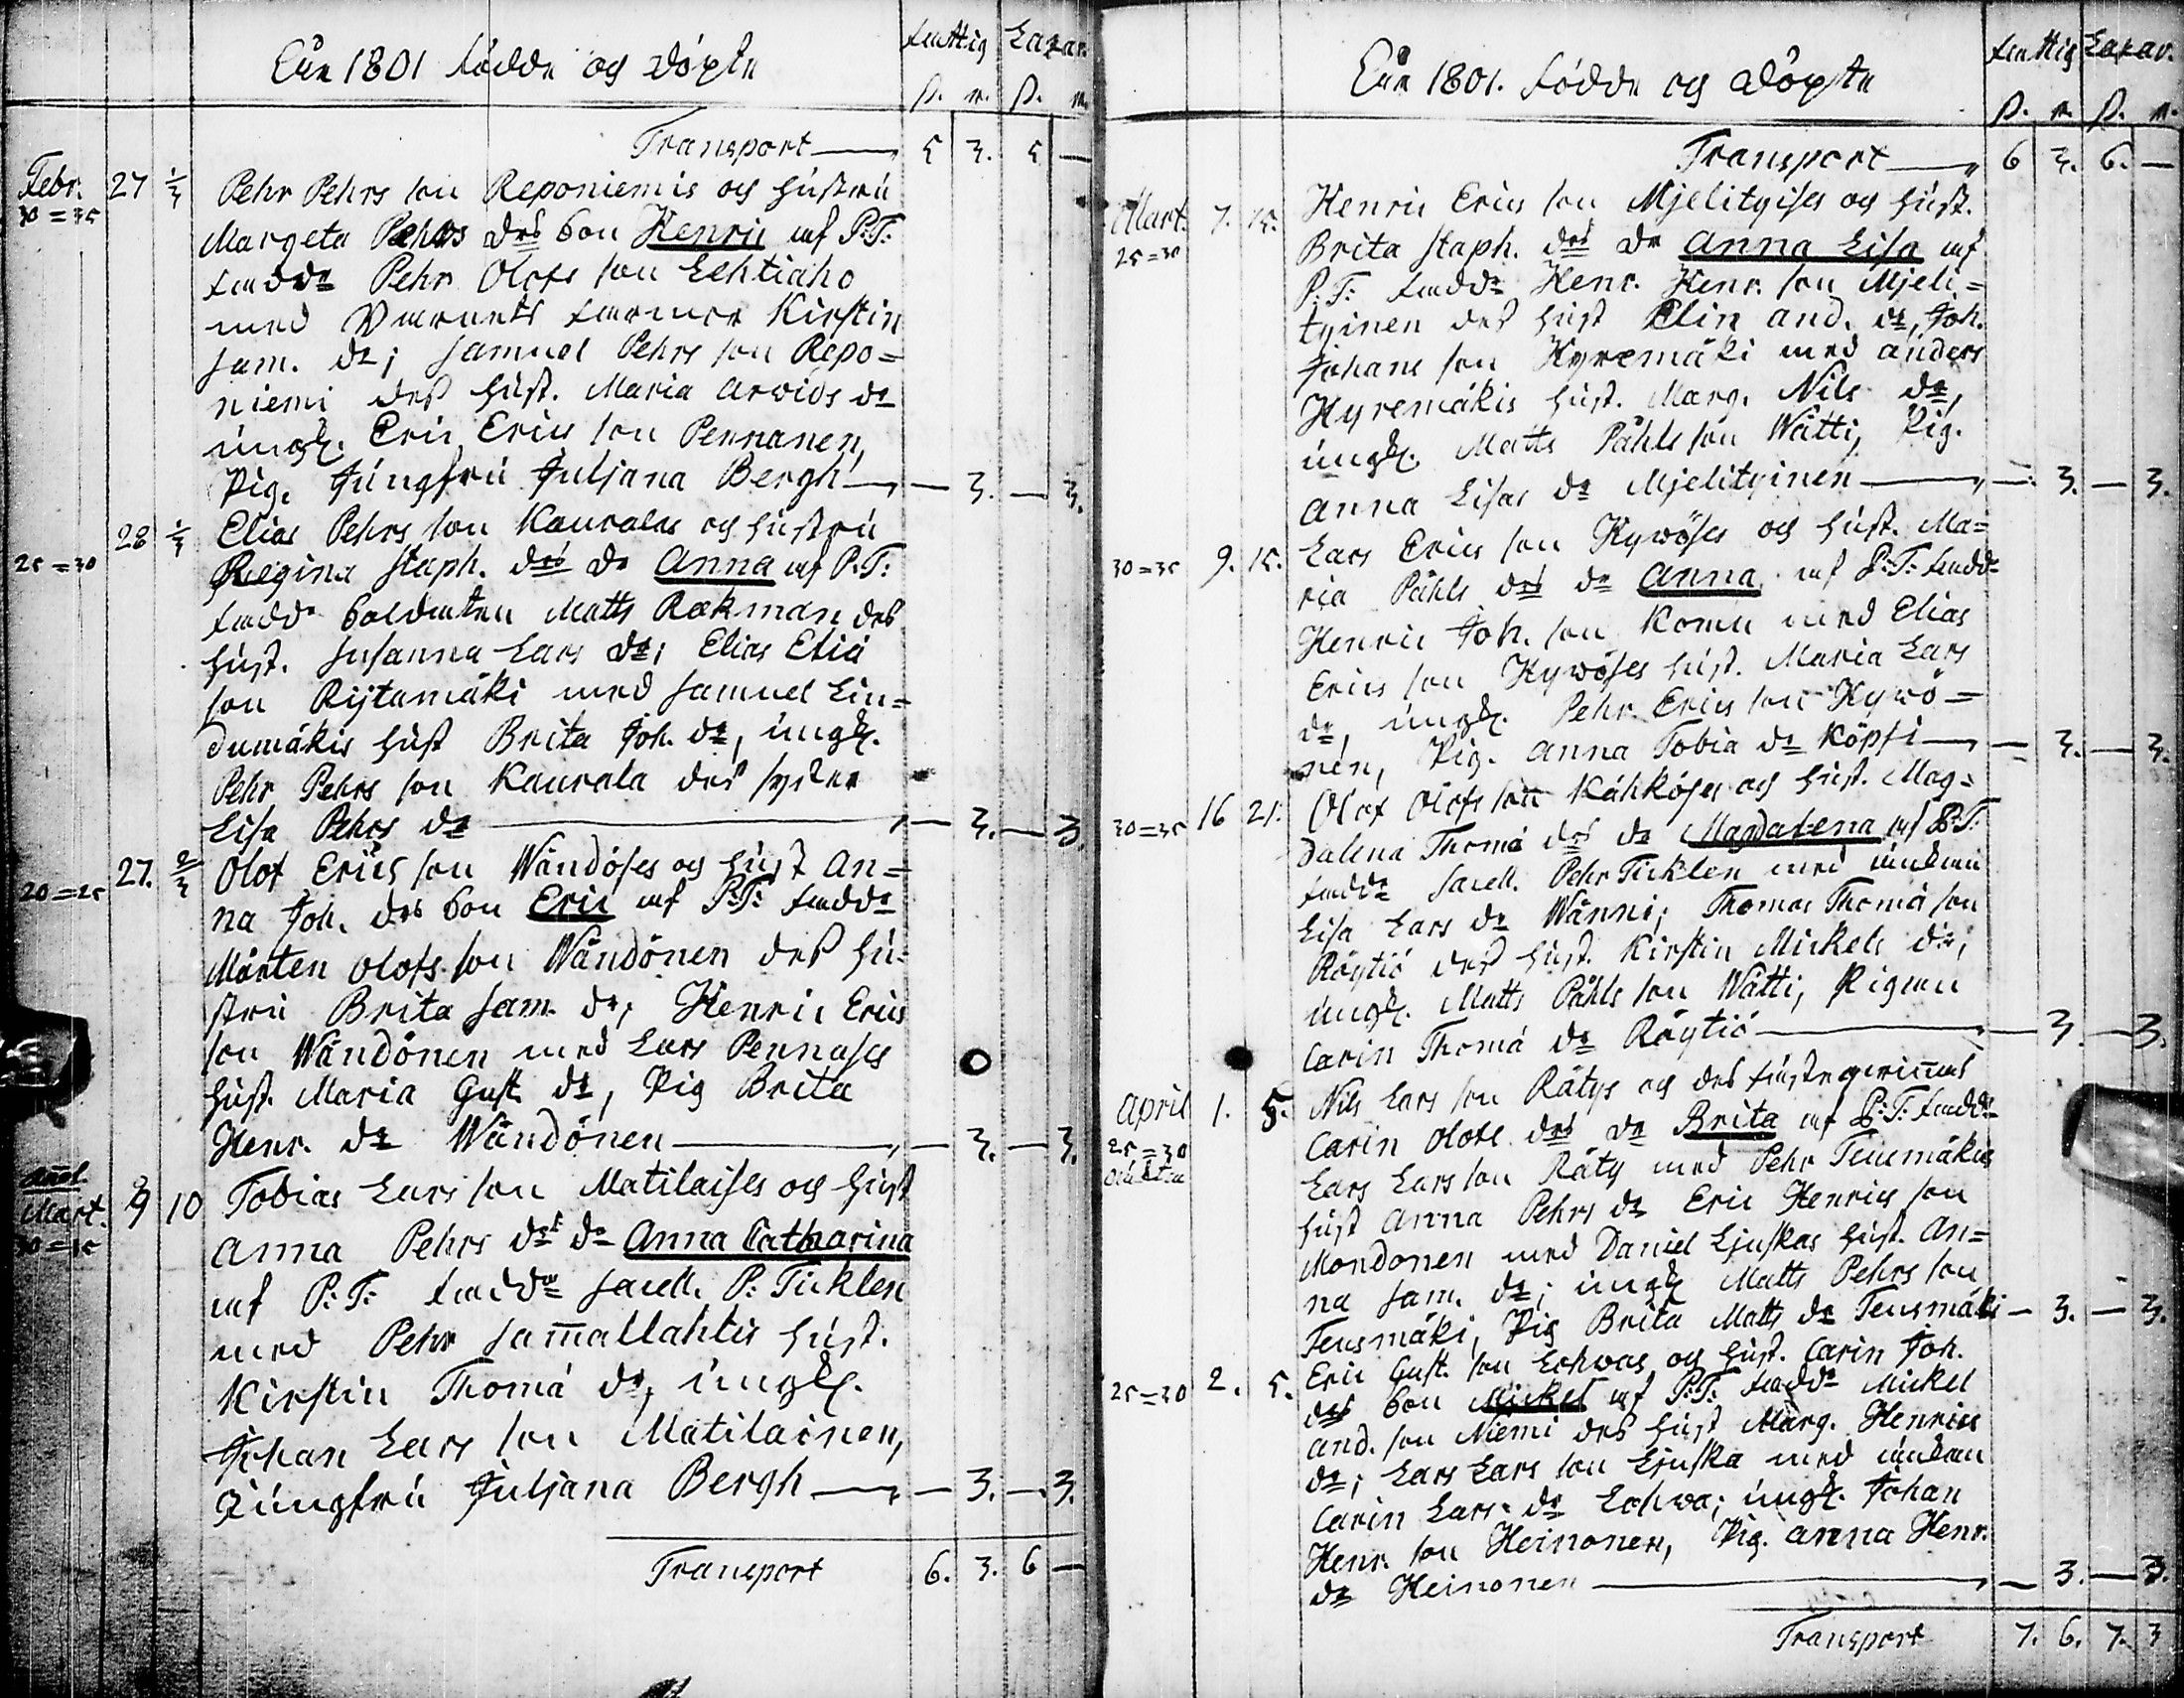 Åhr 1801 födde och Döpte
fattig Lazar.
ß. r. ß. r.
Transport — 5 3. 5 —
Febr. 27 1/3 Pehr Pehrs son Reponiemis och hustru
30=35 Margeta Pehrs drs Son Henric af P:T:
fadde Pehr Olofs son Lehtiaho
med farmor Kirstin
Sam. dr; Samuel Pehrs son Repo=
niemi des hust. Maria Arvids dr
ungk. Eric Erics son Pennanen,
Pig. Jungfru Juljana Bergh — — 3. — 3.
28 1/3 Elias Pehrs son Kauralas och hustru
25=30 Regina Staph. drs dr Anna af P:T:
fadde Soldaten Matts Rökman des
hust. Susanna Lars dr; Elias Eliä
son Rijtamäki med Samuel Lin=
dumäkis hust Brita Joh. dr, ungk.
Pehr Pehrs son Kaurala des syster
Lisa Pehrs dr — — 3. — 3.
27. 2/3 Olof Erics son Wändöses och hust An=
20=25 na Joh. drs Son Eric af P:T: fadde
Mårten Olofs son Wändönen des hu=
stru Brita Sam. dr; Henric Erics
son Wändönen med Lars Pennases
hust. Maria Gust. dr, Pig Brita
Henr. dr Wändönen — — 3. — 3.
Mart. 9 10 Tobias Lars son Matilaises och hust
30=35 Anna Pehrs drs dr Anna Catharina
af P:T: fadde Sacell. P: Ticklen
med Pehr Sam̅allahtis hust.
Kirstin Thomä dr, ungk.
Johan Lars son Matilainen,
Jungfru Juljana Bergh — — 3. — 3.
Transport 6. 3. 6 —
Åhr 1801. födde och Döpte
fattig Lazar.
ß. r. ß. r.
Transport — 6 3. 6. —
Mart. 7. 15. Henric Erics son Mjelityises och hust.
25=30 Brita Staph. drs dr Anna Lisa af
P:T: fadde Henr. Henr. son Mjeli=
tyinen des hust Elin And. dr, Joh.
Johans son Hyremäki med Anders
Hyremäkis hust. Marg. Nils dr,
ungk. Matts Påhls son Wätti, Pig.
Anna Lisas dr Mjelityinen — — 3. — 3.
30=35 9. 15. Lars Erics son Hywöses och hust. Ma=
ria Påhls drs dr Anna af P:T: fadde
Henric Joh. son Komu med Elias
Erics son Hywöses hust. Maria Lars
dr, ungk. Pehr Erics son Hywö=
nen, Pig. Anna Tobia dr Köpsi — — 3. — 3.
30=35 16 21. Olof Olofs son Kähköses och hust. Mag=
dalena Thomä drs dr Magdalena af P:T:
fadde Sacell. Pehr Ticklen med änkan
Lisa Lars dr Wänni; Thomas Thomä son
Röytiö des hust. Kirstin Mickels dr;
ungk. Matts Påhls son Wätti, Pigan
Carin Thomä dr Röytiö — — 3. — 3.
April 1. 5. Nils Lars son Rätys och des
25=30 Carin Olofs drs dr Brita af P:T: fadde
Lars Lars son Räty med Pehr Teusmäkis
hust Anna Pehrs dr Eric Henrics son
Mondonen med Daniel Ljuskas hust. An=
na Sam. dr; ungk Matts Pehrs son
Teusmäki, Pig Brita Matts dr Teusmäki — 3. — 3.
Eric Gust. son Lohwas och hust. Carin Joh.
25=30 2. 5. drs Son Mickel af P:T: fadde Mickel
And. son Niemi des hust Marg. Henrics
dr; Lars Lars son Ljuska med änkan
Carin Lars dr Lohwa; ungk. Johan
Henr. son Heinonen, Pig. Anna Henr.
dr Heinonen — — 3. — 3.
Transport 7. 6. 7. 3